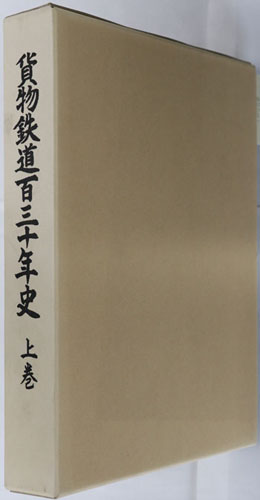 貨物鉄道百三十年史
上巻